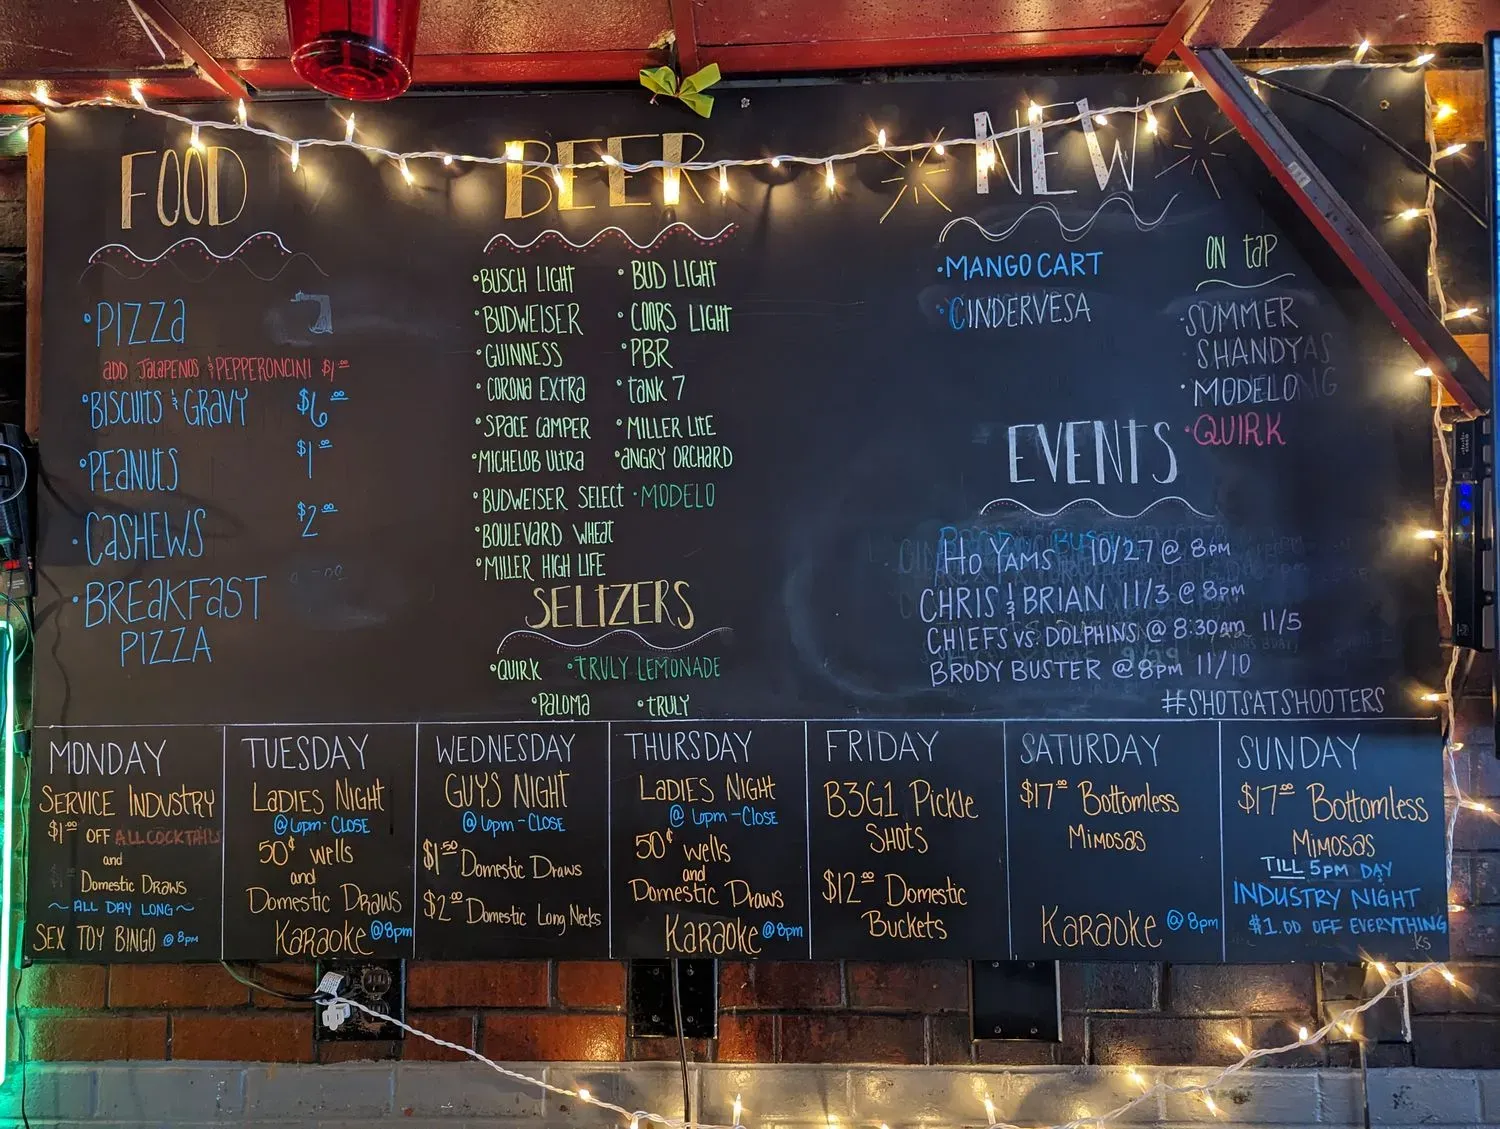 FOOD
• PIZZA
ADD JALAPENOS & PEPPERONCINI $1.00
• BISCUITS & GRAVY $6.00
• PEANUTS $1.00
• CASHEWS $2.00
• BREAKFAST
PIZZA
BEER
• BUSCH LIGHT
• BUDWEISER
• GUINNESS
• CORONA EXTRA
• SPACE CAMPER
• MICHELOB ULTRA
• BUDWEISER SELECT
• BOULEVARD WHEAT
• MILLER HIGH LIFE
• BUD LIGHT
• COORS LIGHT
• PBR
• TANK 7
• MILLER LITE
• ANGRY ORCHARD
• MODELO
SELTZERS
• QUIRK • TRULY LEMONADE
• PALOMA • TRULY
NEW
• MANGO CART
• CINDERVESA
ON TAP
• SUMMER
SHANDY
• MODELO
• QUIRK
EVENTS
HO YAMS 10/27 @ 8PM
CHRIS & BRIAN 11/3 @ 8PM
CHIEFS VS. DOLPHINS @ 8:30AM 11/5
BRODY BUSTER @ 8PM 11/10
#SHOTSATSHOOTERS
MONDAY
SERVICE INDUSTRY
$1.00 OFF ALL COCKTAILS
and
DOMESTIC DRAWS
~ ALL DAY LONG ~
SEX TOY BINGO @ 8PM
TUESDAY
LADIES NIGHT
@ 6pm - CLOSE
50¢ wells
and
DOMESTIC DRAWS
KARAOKE @ 8pm
WEDNESDAY
GUYS NIGHT
@ 6pm - CLOSE
$1.50 DOMESTIC DRAWS
$2.00 DOMESTIC LONG NECKS
THURSDAY
LADIES NIGHT
@ 6pm - CLOSE
50¢ wells
and
DOMESTIC DRAWS
KARAOKE @ 8pm
FRIDAY
B3G1 PICKLE
SHOTS
$12.00 DOMESTIC
BUCKETS
SATURDAY
$17.00 BOTTOMLESS
MIMOSAS
KARAOKE @ 8pm
SUNDAY
$17.00 BOTTOMLESS
MIMOSAS
TILL 5PM DAY
INDUSTRY NIGHT
$1.00 OFF EVERYTHING